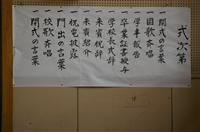 式次第
一開式の言葉
一国歌斉唱
一学事報告
一卒業証書授与
一学校長式辞
一来賓祝辞
一来賓紹介
一祝電披露
一門出の言葉
一校歌斉唱
一閉式の言葉